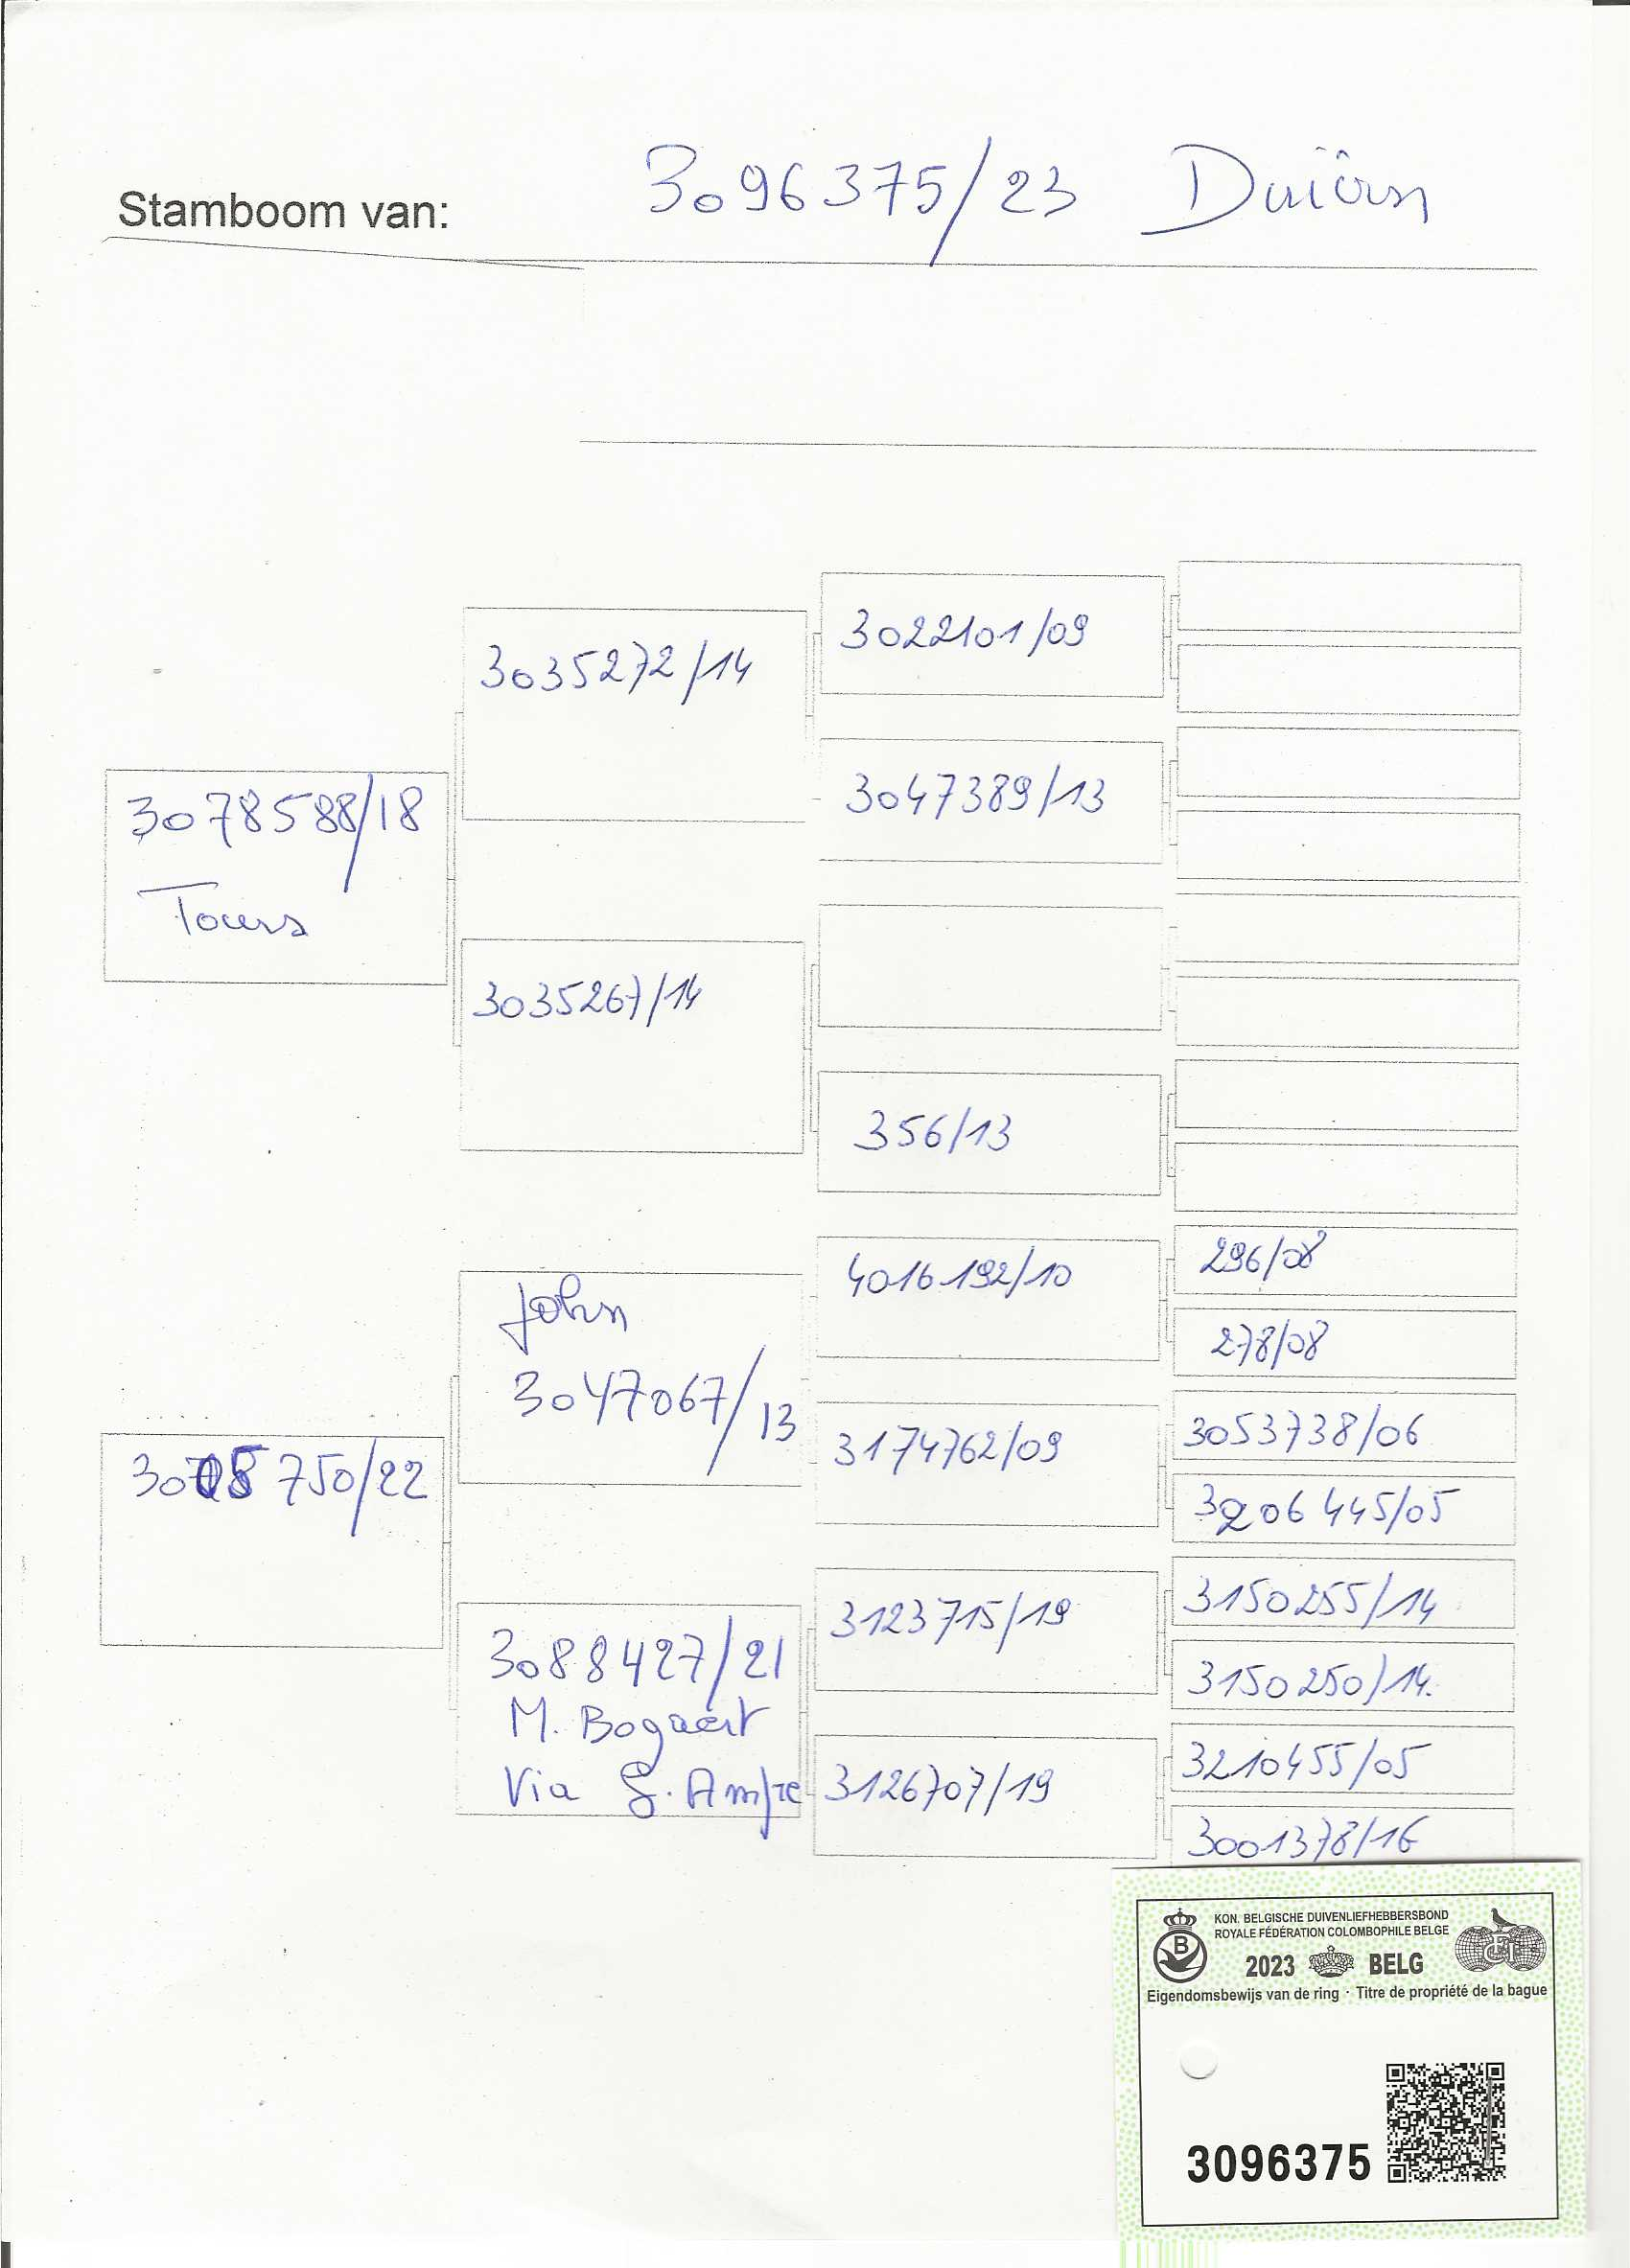 Stamboom van: 3096375/23 Duivin
3078588/18
Tours
3035272/14
3035267/14
3022101/09
3047389/13
356/13
750/22
John
3047067/13
3088427/21
M. Bogaert
Via G. Ampe
4016192/10
3174762/09
3123715/19
3126707/19
296/08
278/08
3053738/06
3206445/05
3150255/14
3150250/14.
3210455/05
3001378/16
KON. BELGISCHE DUIVENLIEFHEBBERSBOND
ROYALE FÉDÉRATION COLOMBOPHILE BELGE
B
2023 BELG
Eigendomsbewijs van de ring · Titre de propriété de la bague
3096375